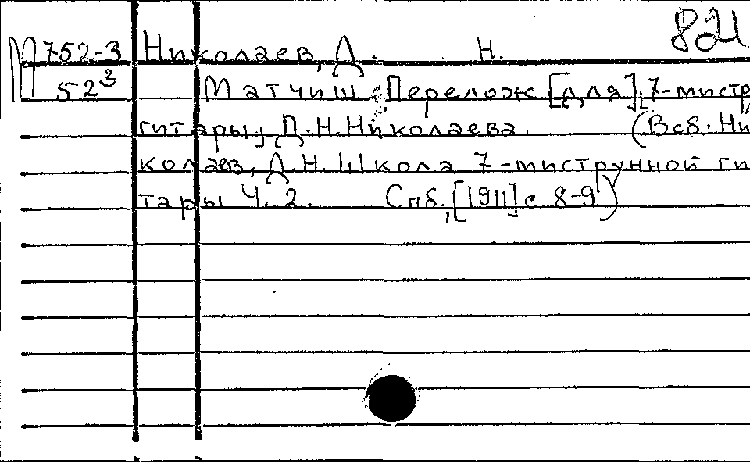 82И
М 752-3 Николаев, Д. Н.
52³ Матчиш. Перелож [для] 7-мистр
гитары, Д.Н.Николаева (В сб: Ни
колаев, Д.Н. Школа 7-миструнной ги
тары Ч. 2. Спб, [1911] с 8-9)